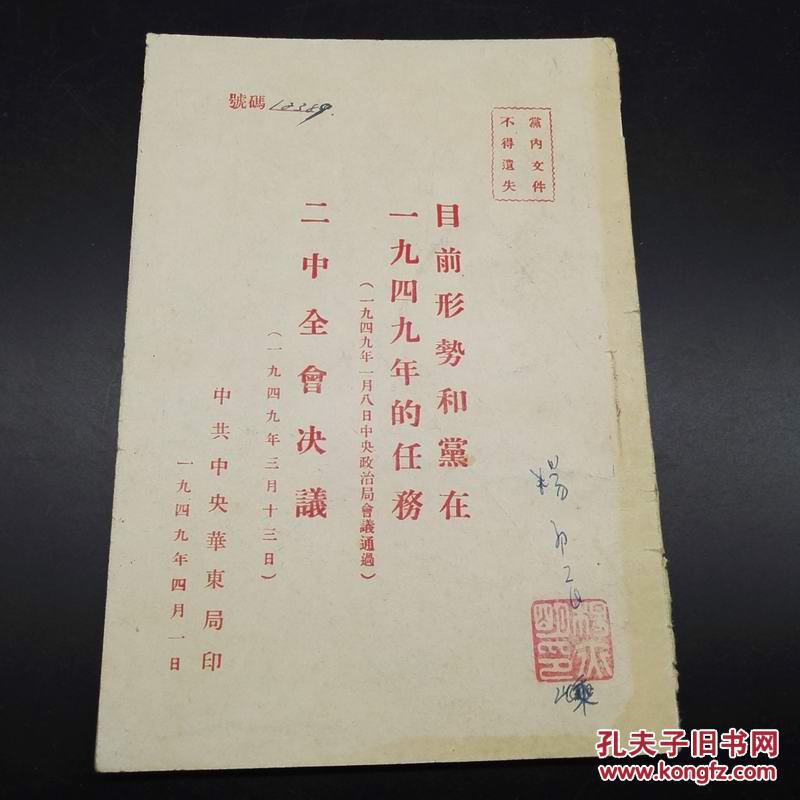 黨內文件
不得遺失
號碼 12389.
目前形勢和黨在
一九四九年的任務
(一九四九年一月八日中央政治局會議通過)
二中全會決議
(一九四九年三月十三日)
中共中央華東局印
一九四九年四月一日
楊
孔夫子旧书网
www.kongfz.com